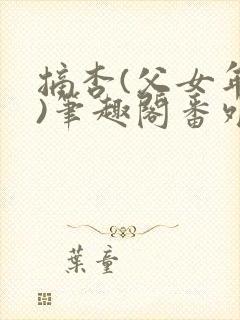 摘杏(父女年
)笔趣阁番外
葉童